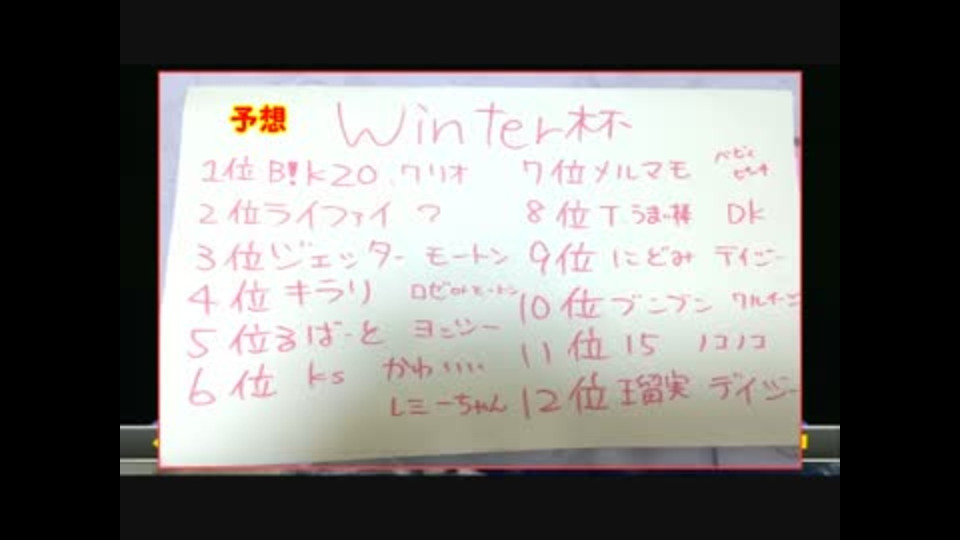 予想 Winter杯
1位 B!k20.クリオ
2位 ライファイ ?
3位 ジェッター モートン
4位 キラリ ロゼorモートン
5位 るばーと ヨッシー
6位 ks かわいい
レミーちゃん
7位 メルマモ ベビィピーチ
8位 T.うまい棒 DK
9位 にどみ デイジー
10位 ブンブン
11位 15 ノコノコ
12位 瑠実 デイジー